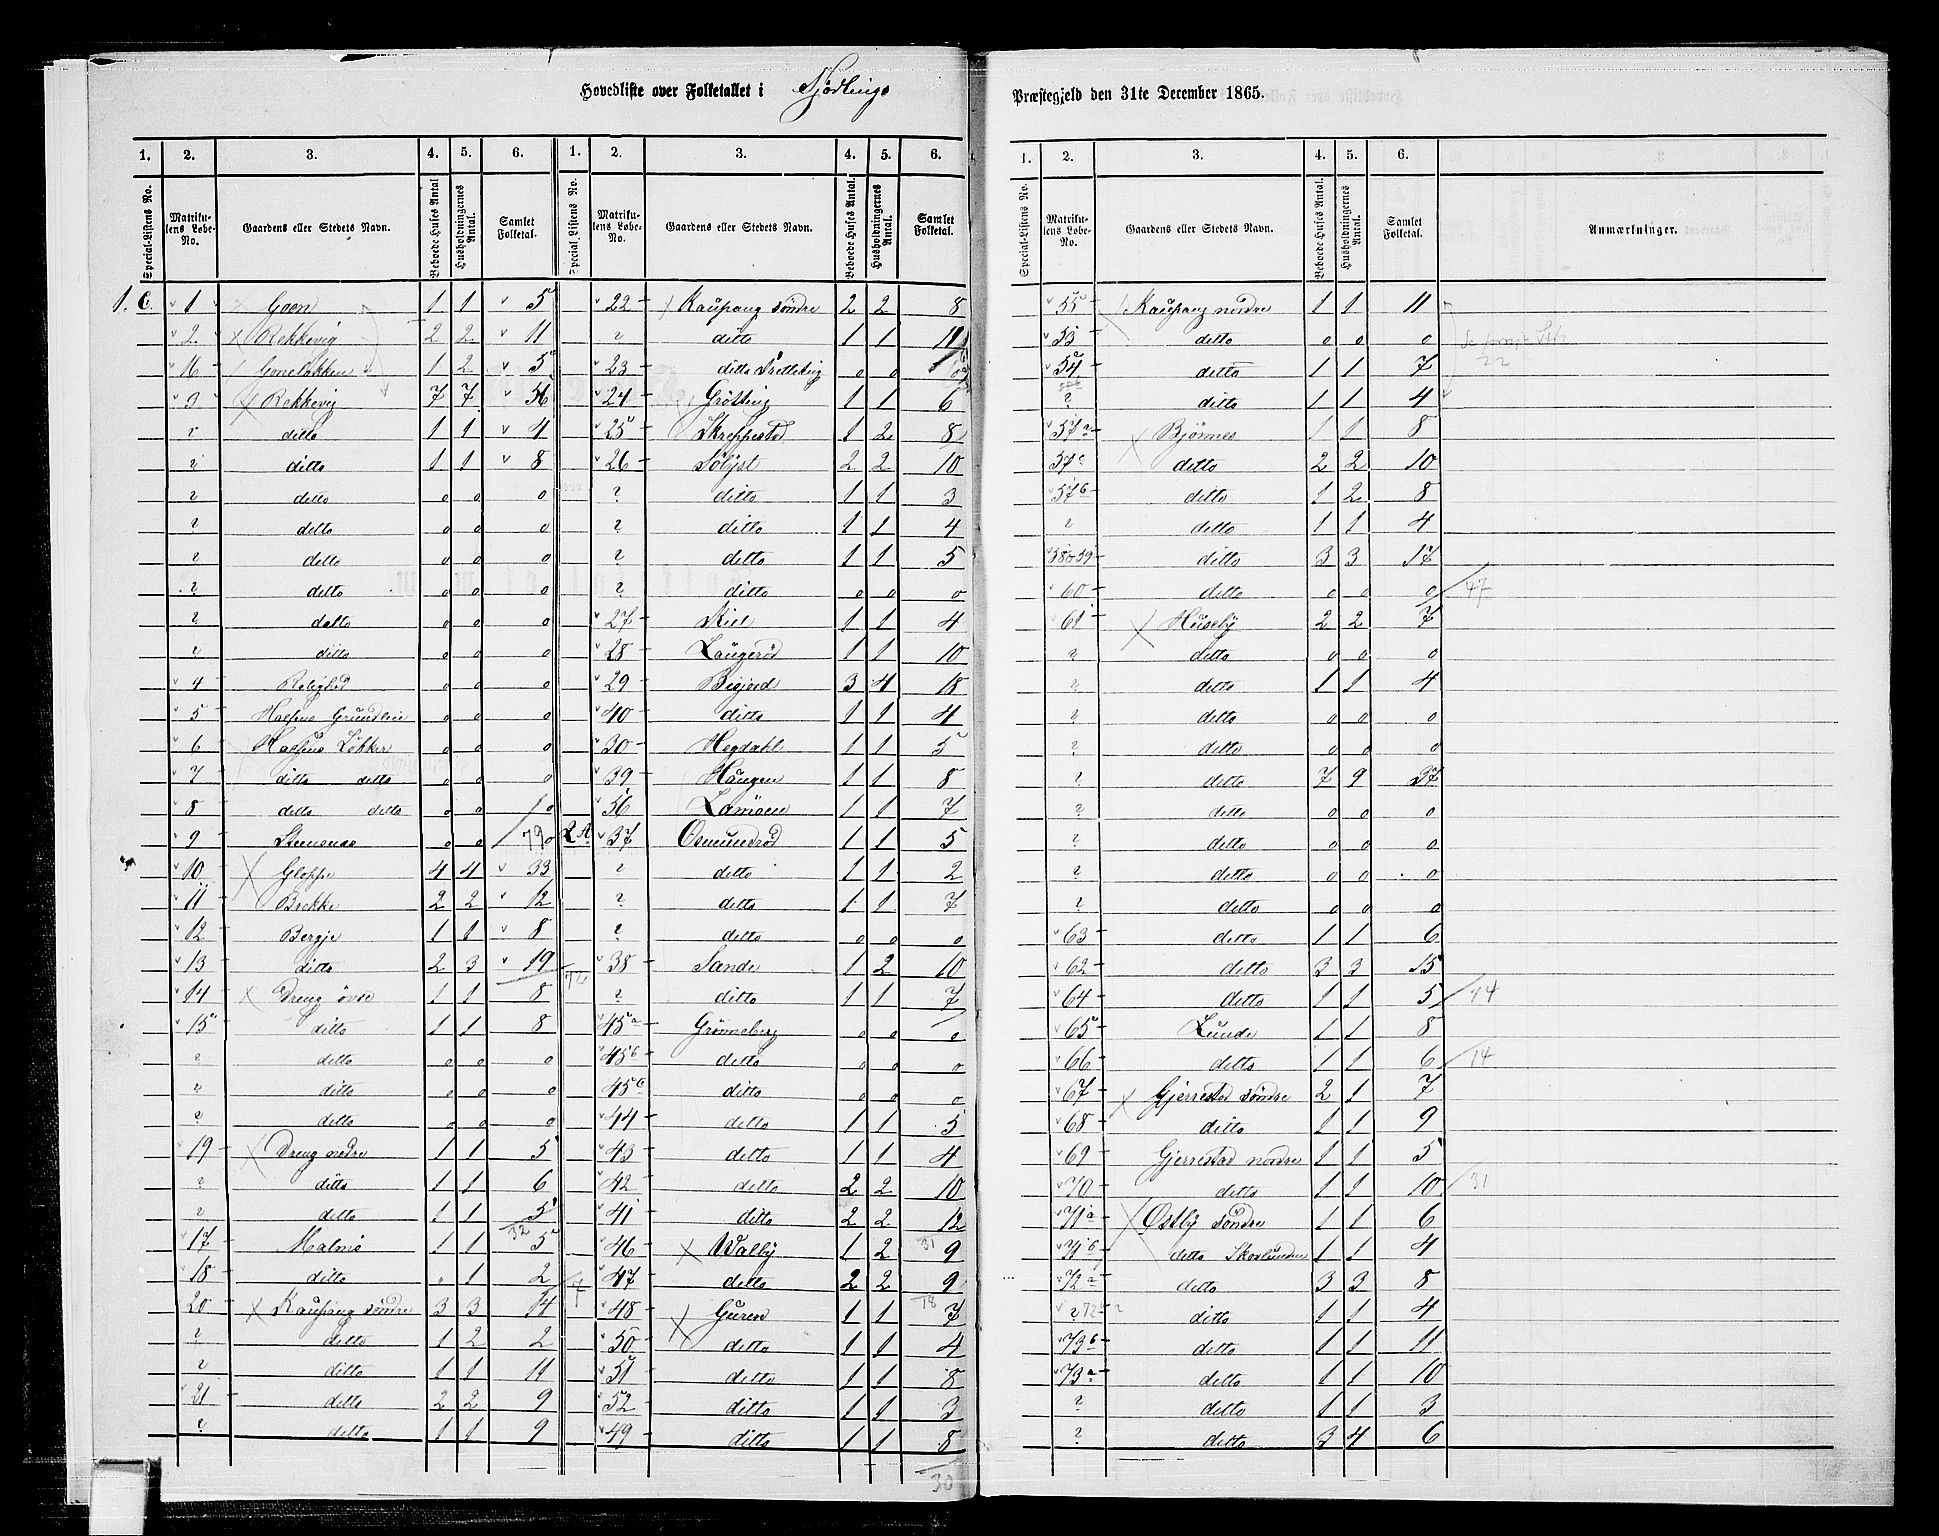 Hovedliste over Folketallet i Tjødlings
Præstegjeld den 31te December 1865.
1. 2. 3. 4. 5. 6. 1. 2. 3. 4. 5. 6.
Special-Listens No. Matrikulens Løbe-No. Gaardens eller Stedets Navn. Beboede Huses Antal Husholdningernes Antal. Samlet Folketal. Special Listens No. Matrikulens Løbe-No. Gaardens eller Stedets Navn. Beboede Huses Antal. Husholdningernes Antal. Samlet Folketal.
1. C. 1 Goen 1 1 5 22 Kaupang söndre 2 2 8
2 Rekkevig 2 2 11 " ditto 1 1 11
16 Goneløkken 1 2 5 23 ditto 0 0
3 Rekkevig 7 7 56 24 Grötting 1 1 6
" ditto 1 1 4 25 Skreppestad 1 2 8
" ditto 1 1 8 26 Sölyst 2 2 10
" ditto 0 0 0 " ditto 1 1 3
" ditto 0 0 0 " ditto 1 1 4
" ditto 0 0 0 " ditto 1 1 5
" ditto 0 0 0 " ditto 0 0 0
" ditto 0 0 0 27 Kiel 1 1 4
" ditto 0 0 0 28 Laugeröd 1 1 10
4 Rolighed 0 0 0 29 Bisjord 3 4 18
5 Grundlien 0 0 0 40 ditto 1 1 4
6 Løkker 0 0 0 30 Hegdahl 1 1 5
7 ditto ditto 0 0 0 39 Haugen 1 1 8
8 ditto ditto 0 0 0 56 Lamöen 1 1 7
9 0 0 0 79 2 A 37 Osmundröd 1 1 5
10 Gloppe 4 4 33 " ditto 1 1 2
11 Brekke 2 2 12 " ditto 1 1 7
12 Bergje 1 1 8 " ditto 0 0 0
13 ditto 2 3 19 72 38 Sande 1 2 10
14 Dreng övre 1 1 8 " ditto 1 1 7
15 ditto 1 1 8 45a Grönneberg 0 0 0
" ditto 0 0 0 45b ditto 0 0 0
" ditto 0 0 0 45c ditto 0 0 0
" ditto 0 0 0 44 ditto 1 1 5
19 Dreng nedre 1 1 5 43 ditto 1 1 4
" ditto 1 1 6 42 ditto 2 2 10
" ditto 1 1 5 32 41 ditto 2 2 12
17 Malmö 1 1 5 46 Walby 1 2 31 9
18 ditto " 1 2 7 47 ditto 2 2 9
20 Kaupang söndre 3 3 14 48 Guren 1 1 18 7
" ditto 1 2 2 50 ditto 1 1 4
" ditto 1 1 11 51 ditto 1 1 8
21 ditto 2 2 9 52 ditto 1 1 3
" ditto 1 1 9 49 ditto 1 1 8
30
1. 2. 3. 4. 5. 6.
Special-Listens No. Matrikulens Løbe-No. Gaardens eller Stedets Navn. Beboede Huses Antal. Husholdningernes Antal. Samlet Folketal. Anmærkninger.
55 Kaupang nordre 1 1 11
53 ditto 0 0 0
54 ditto 1 1 7 22
" ditto 1 1 4
57a Bjönnes 1 1 8
57c ditto 2 2 10
57b ditto 1 2 8
" ditto 1 1 4
58 o 59 ditto 3 3 17
60 ditto 0 0 0 47
61 Huseby 2 2 7
" ditto 0 0 0
" ditto 1 1 4
" ditto 0 0 0
" ditto 0 0 0
" ditto 7 9 37
" ditto 0 0 0
" ditto 0 0 0
" ditto 0 0 0
" ditto 0 0 0
63 ditto 1 1 6
62 ditto 3 3 15
64 ditto 1 1 5 74
65 Lunde 1 1 8
66 ditto 1 1 6 14
67 Gjerrestad söndre 2 1 7
68 ditto 1 1 9
69 Gjerrestad nordre 1 1 5
70 ditto 1 1 10 31
71a Østby söndre 1 1 6
71b ditto Skovlunden 1 1 4
72a ditto 3 3 8
" 72b ditto 1 1 4
73b ditto 1 1 11
73a ditto 1 1 10
" ditto 1 1 3
" ditto 3 4 6